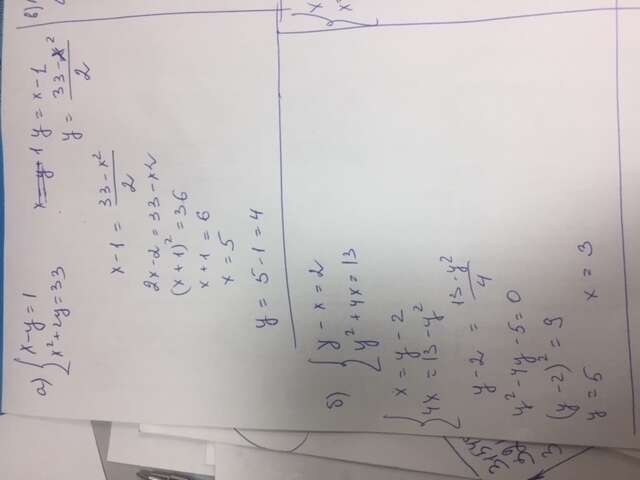 а) { x - y = 1
x² + 2y = 33
x - y + 1 y = x - 1
y = 33 - x² / 2
x - 1 = 33 - x² / 2
2x - 2 = 33 - x²
(x + 1)² = 36
x + 1 = 6
x = 5
y = 5 - 1 = 4
б) { y - x = 2
y² + 4x = 13
{ x = y - 2
4x = 13 - y²
y - 2 = 13 - y² / 4
y² - 4y - 5 = 0
(y - 2)² = 9
y = 5 x = 3
в)
{ x
x²